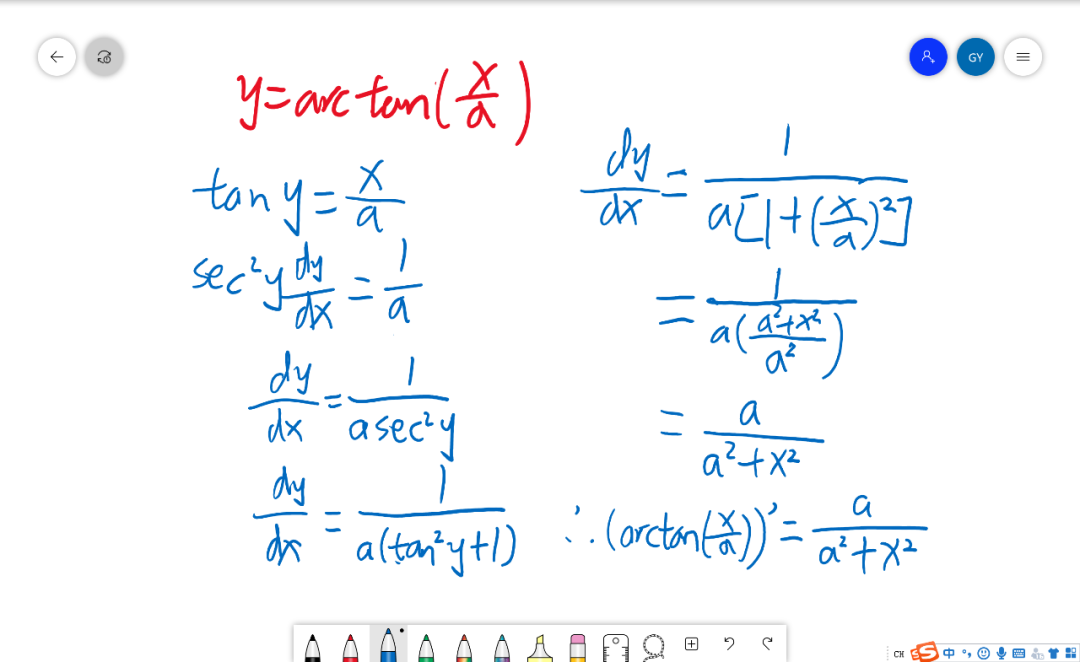 GY
y=arctan(x/a)
tan y = x/a
sec²y dy/dx = 1/a
dy/dx = 1/(a sec²y)
dy/dx = 1/(a(tan²y+1))
dy/dx = 1/(a[1+(x/a)²])
= 1/(a((a²+x²)/a²))
= a/(a²+x²)
∴ (arctan(x/a))' = a/(a²+x²)
CH S 中